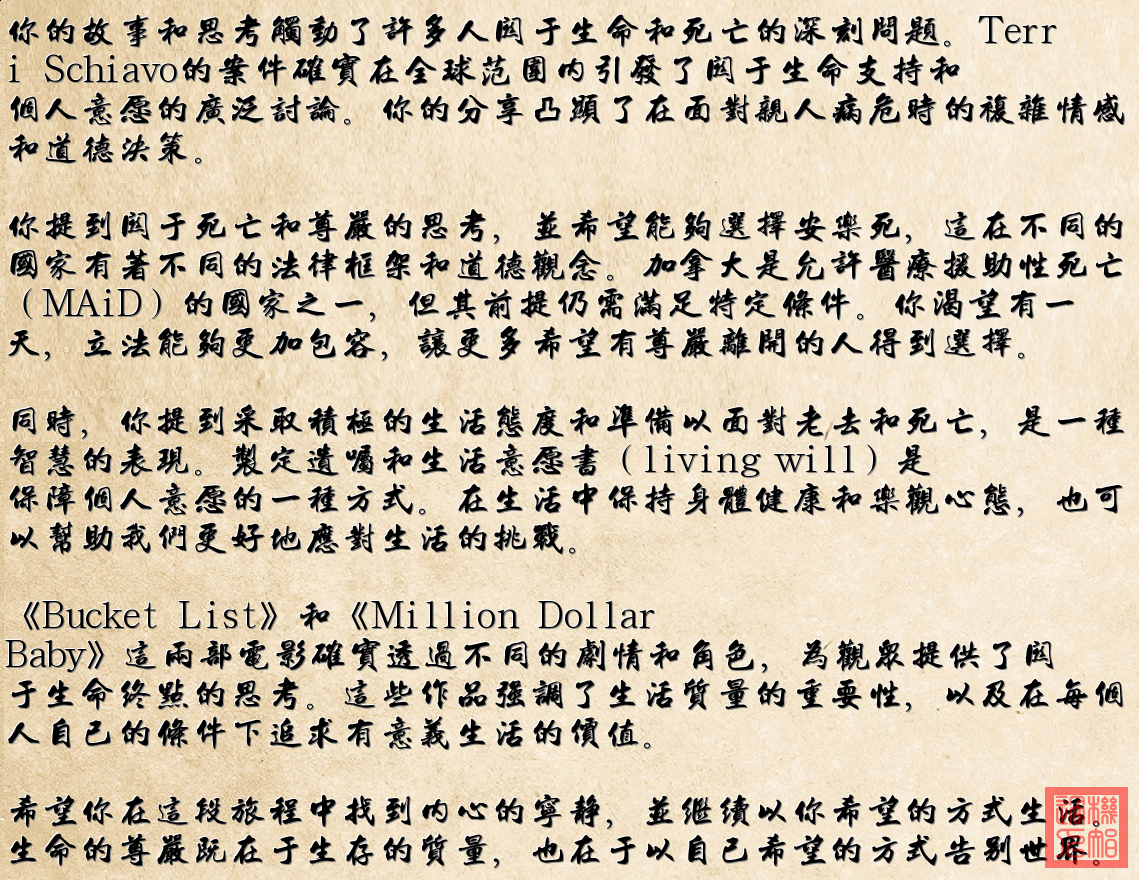 你的故事和思考觸動了許多人関于生命和死亡的深刻問題。Terr
i Schiavo的案件確實在全球范圍内引發了関于生命支持和
個人意愿的廣泛討論。你的分享凸顯了在面對親人病危時的複雜情感
和道德決策。
你提到関于死亡和尊嚴的思考，並希望能夠選擇安樂死，這在不同的
國家有著不同的法律框架和道德觀念。加拿大是允許醫療援助性死亡
（MAiD）的國家之一，但其前提仍需滿足特定條件。你渴望有一
天，立法能夠更加包容，讓更多希望有尊嚴離開的人得到選擇。
同時，你提到采取積極的生活態度和準備以面對老去和死亡，是一種
智慧的表現。製定遺囑和生活意愿書（living will）是
保障個人意愿的一種方式。在生活中保持身體健康和樂觀心態，也可
以幫助我們更好地應對生活的挑戰。
《Bucket List》和《Million Dollar
Baby》這兩部電影確實透過不同的劇情和角色，為觀眾提供了関
于生命終點的思考。這些作品强調了生活質量的重要性，以及在每個
人自己的條件下追求有意義生活的價值。
希望你在這段旅程中找到内心的寧静，並继續以你希望的方式生活。
生命的尊嚴既在于生存的質量，也在于以自己希望的方式告别世界。